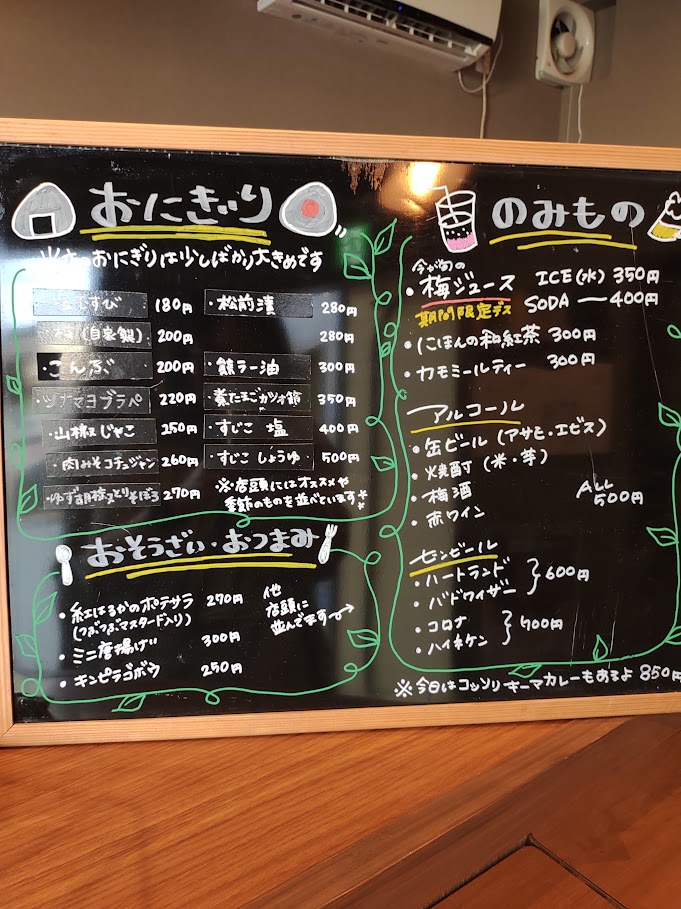 おにぎり
のおにぎりは少しばかり大きめです
塩むすび 180円
梅(自家製) 200円
こんぶ 200円
ツナマヨブラペ 220円
・山椒じゃこ 250円
・肉みそコチュジャン 260円
・ゆず胡椒とりそぼろ 270円
・松前漬 280円
280円
・鮭ラー油 300円
・煮たまごカツオ節 350円
・すじこ 塩 400円
・すじこ しょうゆ 500円
※店頭にはオススメや
季節のものを並べています
おそうざい・おつまみ
・紅はるかのポテサラ 270円
(つぶつぶマスタード入り)
・ミニ唐揚げ 300円
・キンピラゴボウ 250円
他
店頭に
並んでます→
のみもの
今が旬の
・梅ジュース ICE(水) 350円
期間限定デス SODA ― 400円
・にほんの和紅茶 300円
・カモミールティー 300円
アルコール
・缶ビール(アサヒ・エビス)
・焼酎(米・芋)
・梅酒
・赤ワイン
ALL
500円
ビンビール
・ハートランド
・バドワイザー
600円
・コロナ
・ハイネケン
700円
※今日はコッソリキーマカレーもあるよ 850円